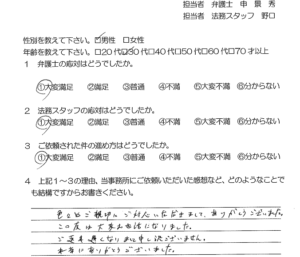 担当者 弁護士 申 景 秀
担当者 法務スタッフ 野口
性別を教えて下さい。☑男性 □女性
年齢を教えて下さい。□20代☑30代□40代□50代□60代□70才以上
1 弁護士の応対はどうでしたか。
①大変満足 ②満足 ③普通 ④不満 ⑤大変不満 ⑥分からない
2 法務スタッフの応対はどうでしたか。
①大変満足 ②満足 ③普通 ④不満 ⑤大変不満 ⑥分からない
3 ご依頼された件の進め方はどうでしたか。
①大変満足 ②満足 ③普通 ④不満 ⑤大変不満 ⑥分からない
4 上記1~3の理由、当事務所にご依頼いただいた感想など、どのようなことで
も結構ですからお書きください。
色々とご親切に ご対応いただきまして、ありがとうございました。
この度は 大変お世話になりました。
ご返事遅くなり 申し訳ございません。
本当に ありがとう ございました。